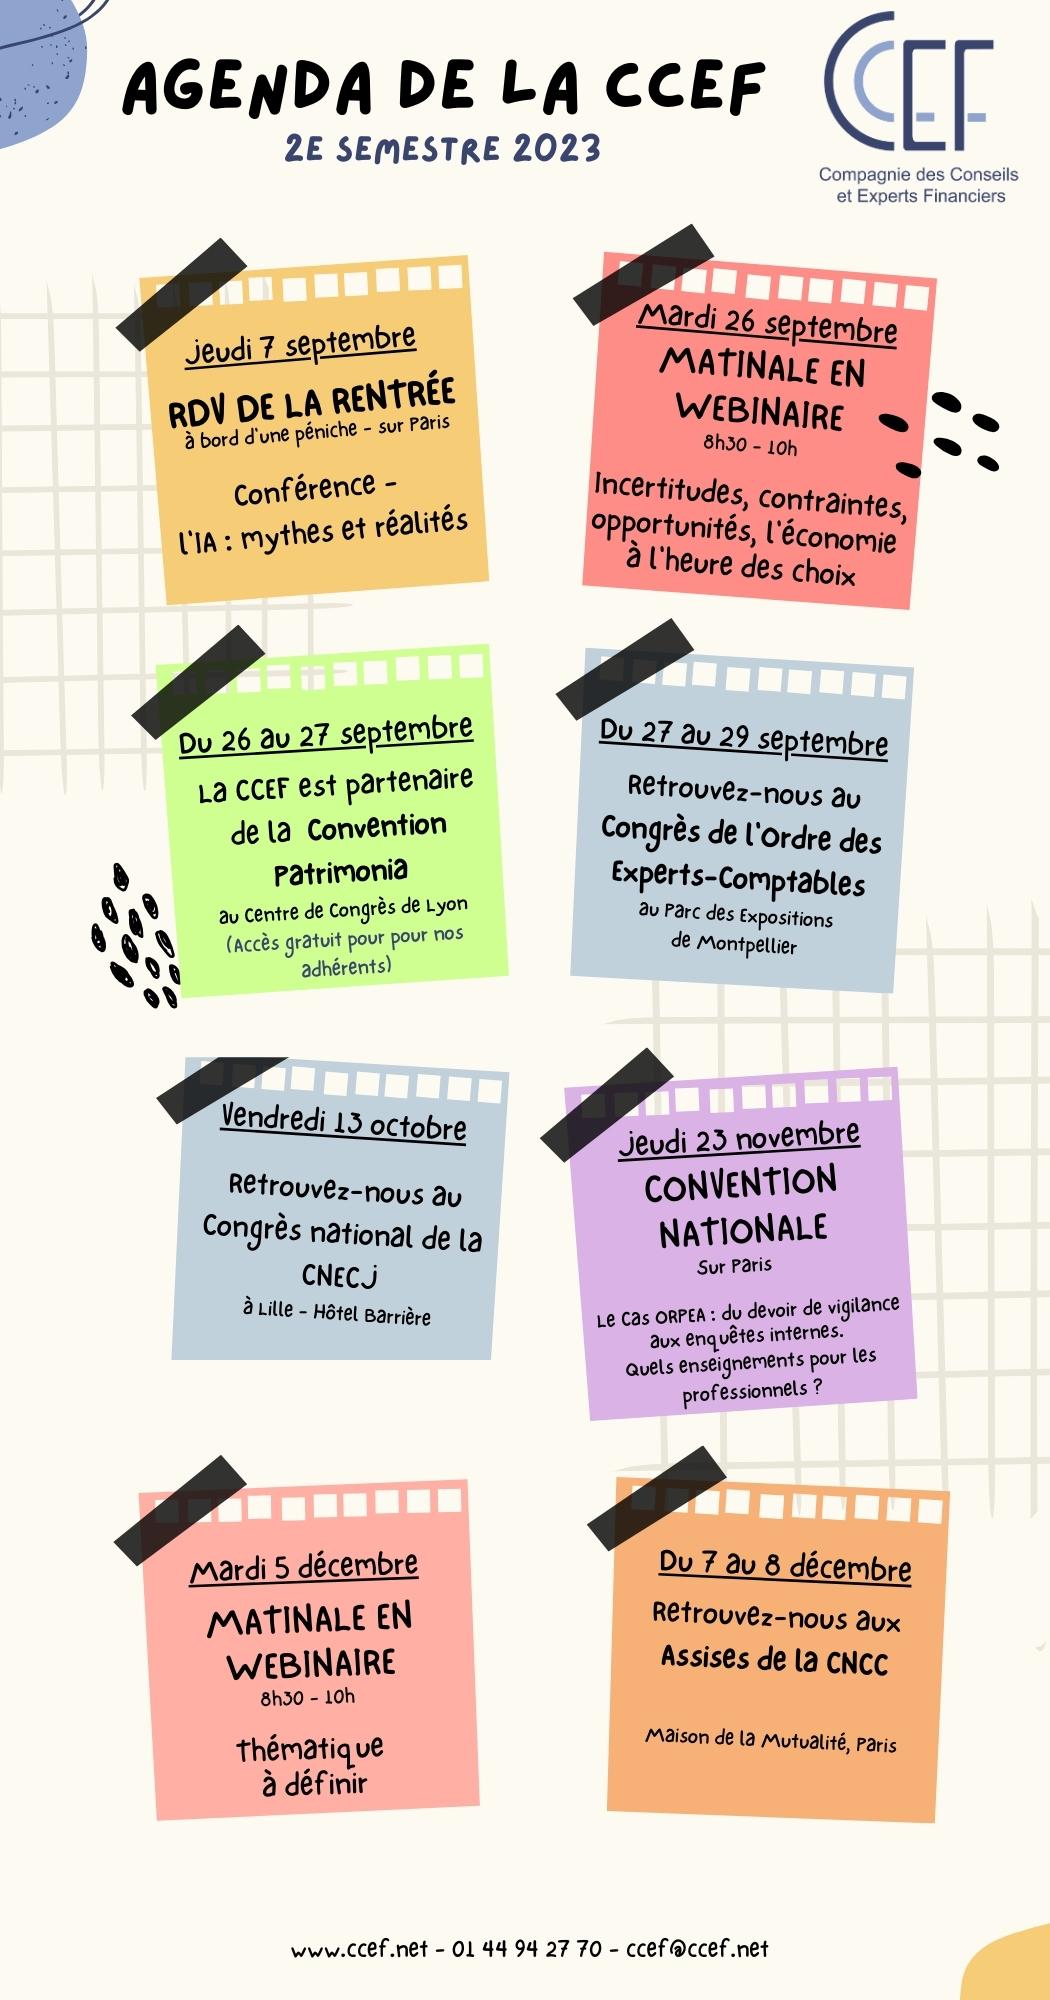 AGENDA DE LA CCEF
2E SEMESTRE 2023
CCEF
Compagnie des Conseils
et Experts Financiers
Jeudi 7 septembre
RDV DE LA RENTRÉE
à bord d'une péniche - sur Paris
Conférence -
l'IA : mythes et réalités
Mardi 26 septembre
MATINALE EN
WEBINAIRE
8h30 - 10h
Incertitudes, contraintes,
opportunités, l'économie
à l'heure des choix
Du 26 au 27 septembre
La CCEF est partenaire
de la Convention
Patrimonia
au Centre de Congrès de Lyon
(Accès gratuit pour pour nos
adhérents)
Du 27 au 29 septembre
Retrouvez-nous au
Congrès de l'Ordre des
Experts-Comptables
au Parc des Expositions
de Montpellier
Vendredi 13 octobre
Retrouvez-nous au
Congrès national de la
CNECJ
à Lille - Hôtel Barrière
Jeudi 23 novembre
CONVENTION
NATIONALE
Sur Paris
Le Cas ORPEA : du devoir de vigilance
aux enquêtes internes.
Quels enseignements pour les
professionnels ?
Mardi 5 décembre
MATINALE EN
WEBINAIRE
8h30 - 10h
Thématique
à définir
Du 7 au 8 décembre
Retrouvez-nous aux
Assises de la CNCC
Maison de la Mutualité, Paris
www.ccef.net - 01 44 94 27 70 - ccef@ccef.net